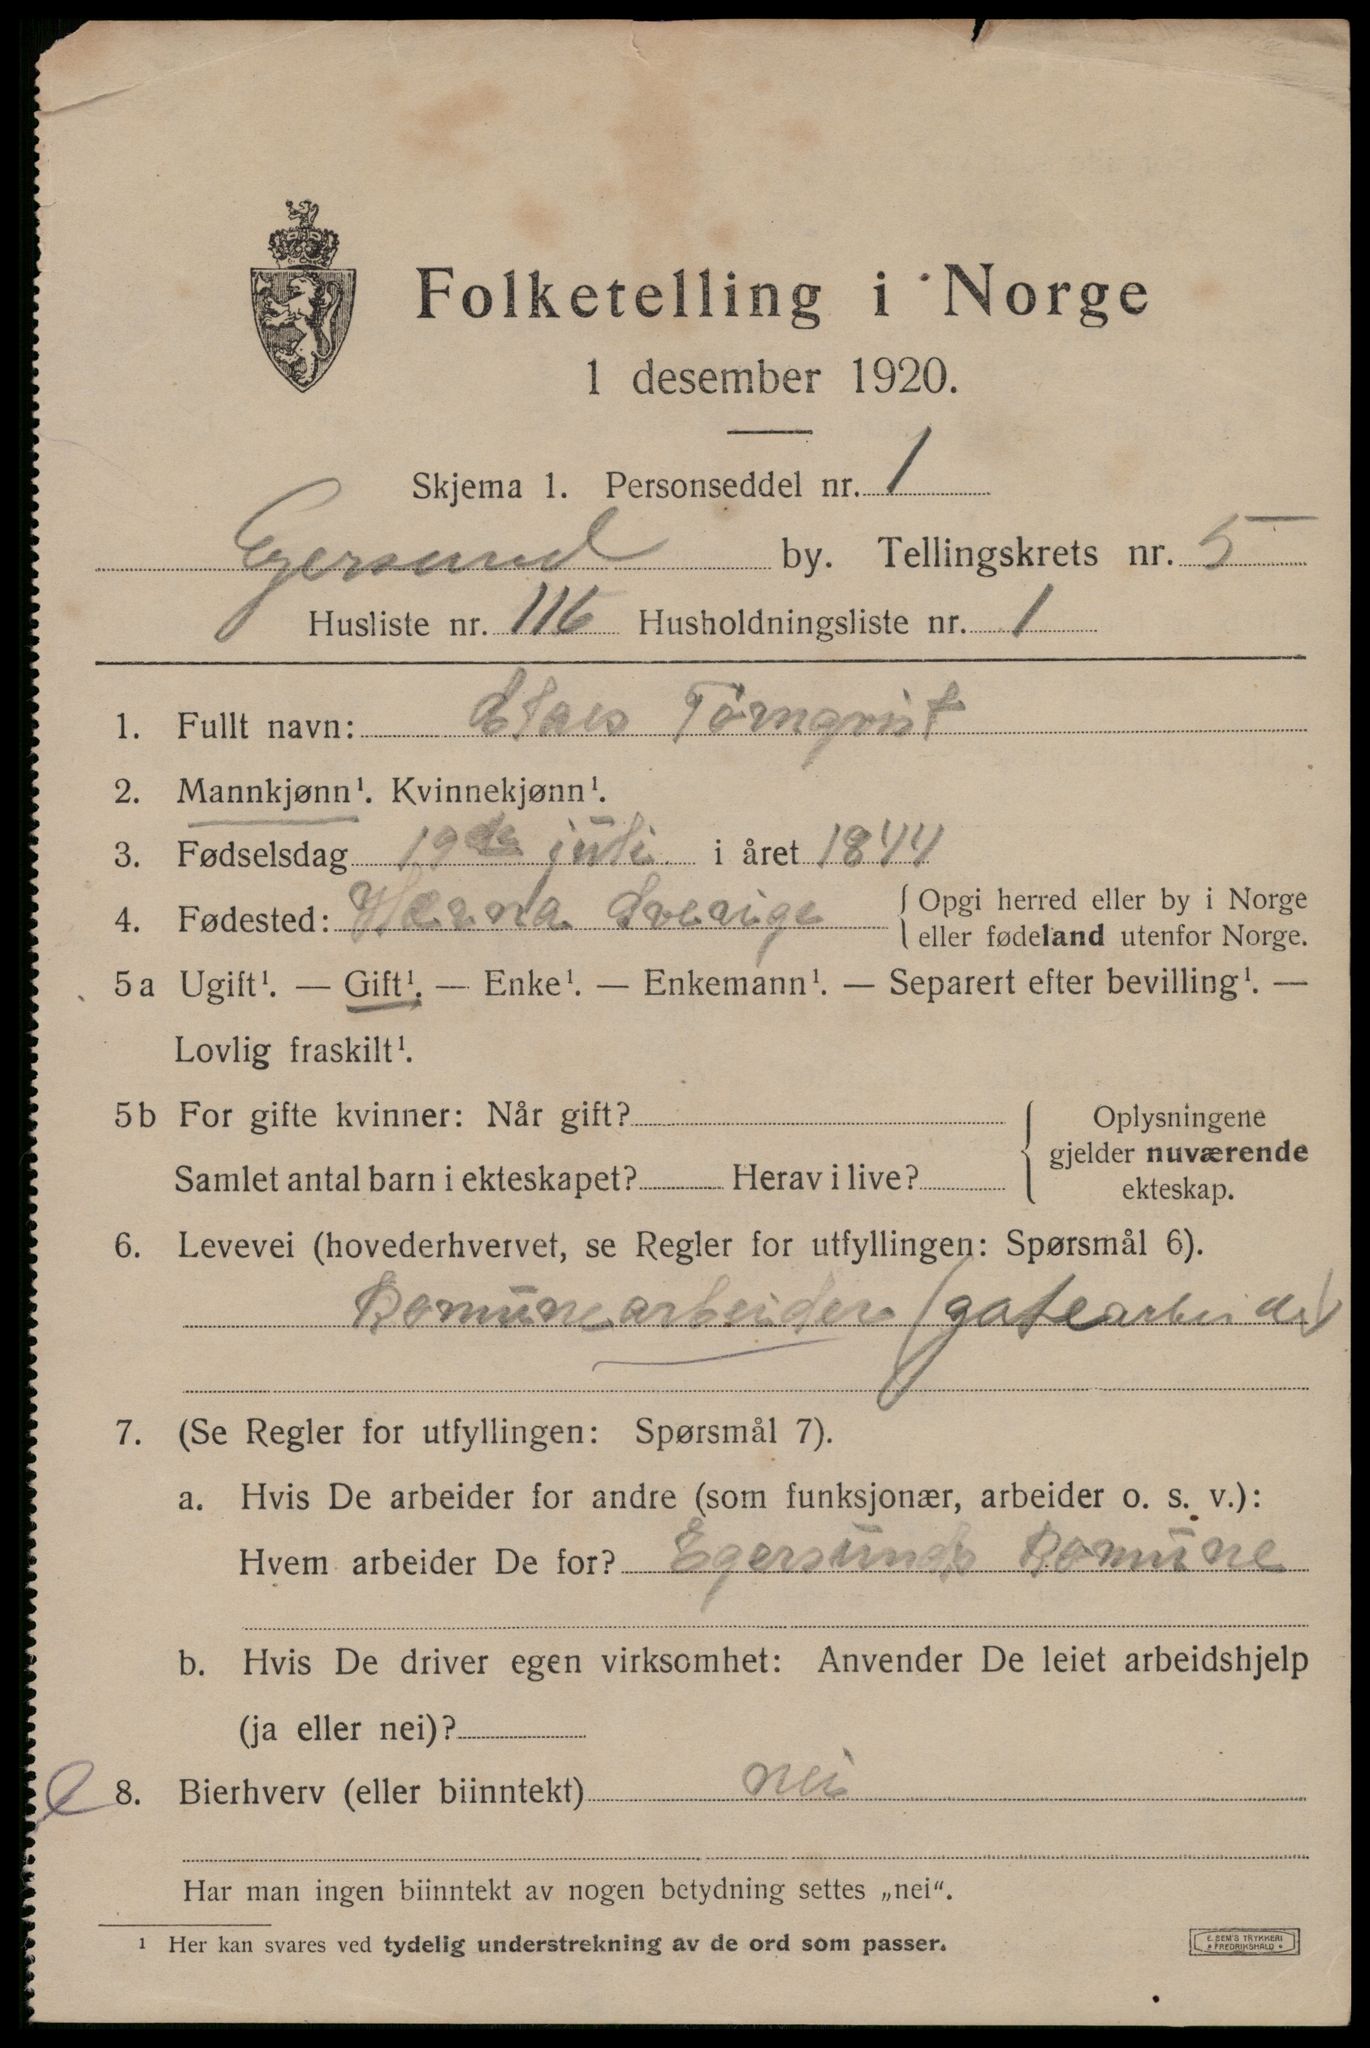 Folketelling i Norge
1 desember 1920.
Skjema 1. Personseddel nr. 1
Egersund by. Tellingskrets nr. 5
Husliste nr. 116 Husholdningsliste nr. 1
1. Fullt navn: Claes Törnqvist
2. Mannkjønn¹. Kvinnekjønn¹.
3. Fødselsdag 19de juli i året 1844
4. Fødested: Sverige { Opgi herred eller by i Norge
eller fødeland utenfor Norge.
5a Ugift¹. — Gift¹. — Enke¹. — Enkemann¹. — Separert efter bevilling¹. —
Lovlig fraskilt¹.
5b For gifte kvinner: Når gift? { Oplysningene
gjelder nuværende
Samlet antal barn i ekteskapet? Herav i live? ekteskap.
6. Levevei (hovederhvervet, se Regler for utfyllingen: Spørsmål 6).
Komunearbeider (gatearbeider)
7. (Se Regler for utfyllingen: Spørsmål 7).
a. Hvis De arbeider for andre (som funksjonær, arbeider o. s. v.):
Hvem arbeider De for? Egersunds Komune
b. Hvis De driver egen virksomhet: Anvender De leiet arbeidshjelp
(ja eller nei)?
8. Bierhverv (eller biinntekt) nei
Har man ingen biinntekt av nogen betydning settes „nei“.
¹ Her kan svares ved tydelig understrekning av de ord som passer.
E. SEM'S TRYKKERI
* FREDRIKSHALD *